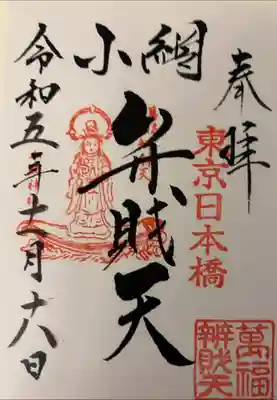 奉拝
東京日本橋
小網
弁戝天
令和五年十一月十八日
萬福
辨戝天